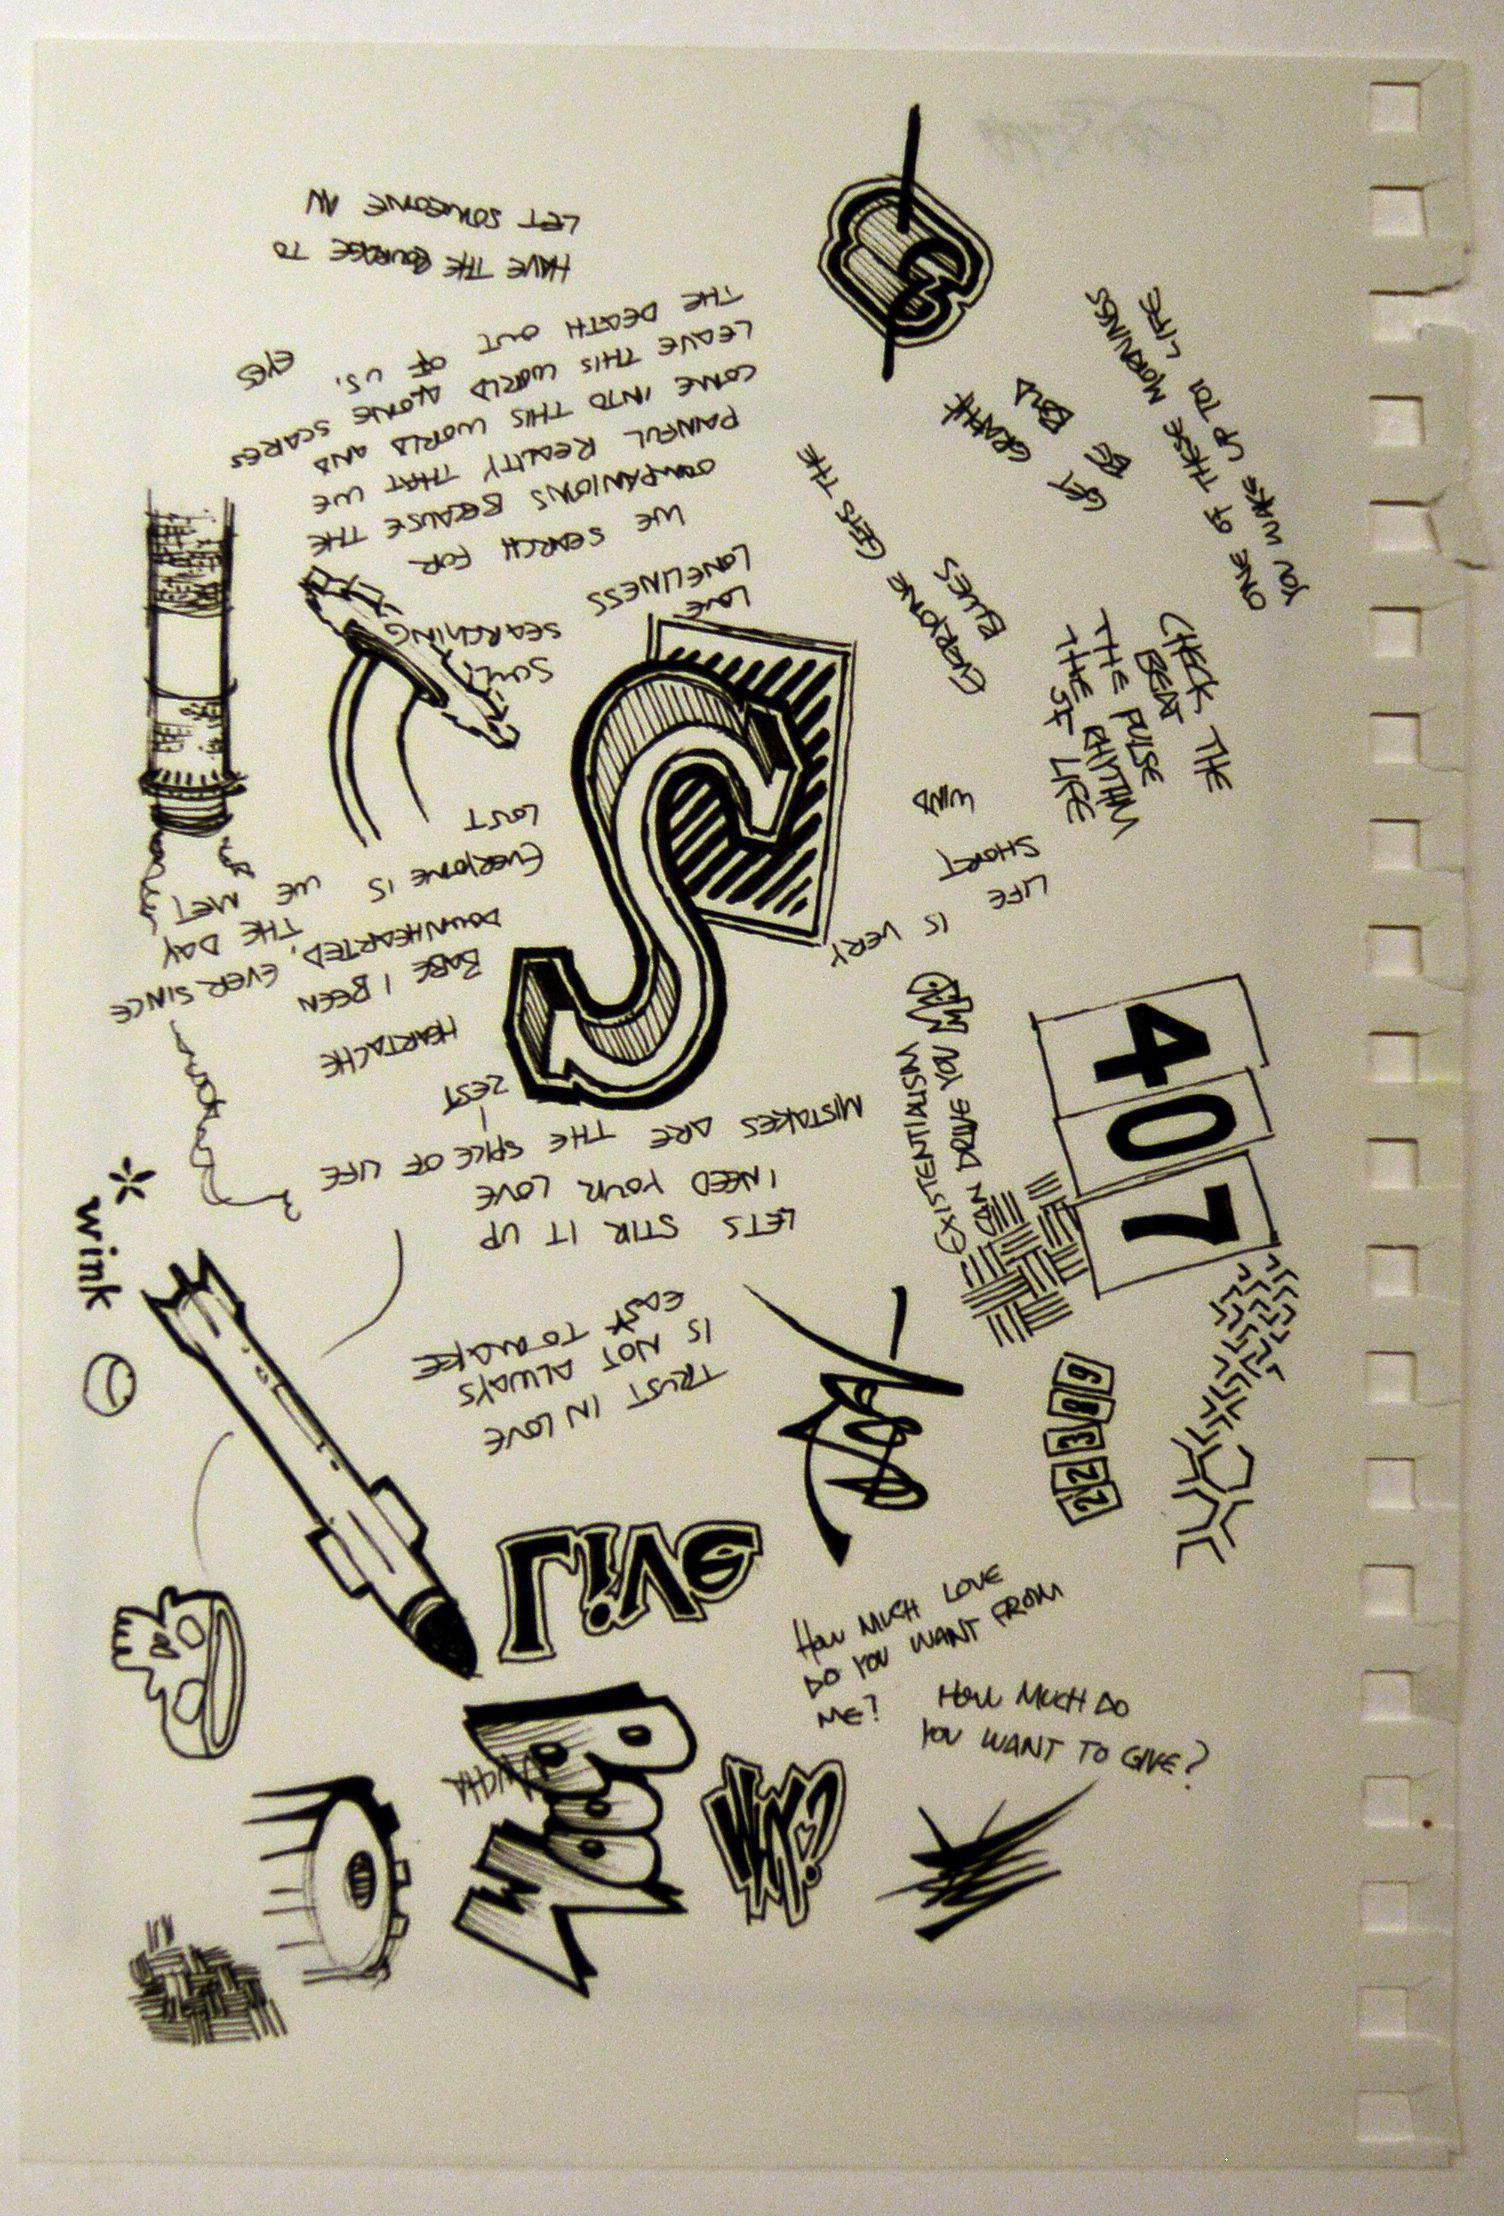 LET SOMEONE IN
HAVE THE COURAGE TO
EYES
THE DEATH OUT OF US.
LEAVE THIS WORLD ALONE SCARES
COME INTO THIS WORLD AND
PAINFUL REALITY THAT WE
COMPANIONS BECAUSE THE
WE SEARCH FOR
LONELINESS
LOVE
SEARCHING
SOUL
LOST
EVERYONE IS
WE MET
THE DAY
EVER SINCE
DOWNHEARTED,
BABE I BEEN
HEARTACHE
ZEST
MISTAKES ARE THE SPICE OF LIFE
I NEED YOUR LOVE
LETS STIR IT UP
TRUST IN LOVE
IS NOT ALWAYS
EASY TO MAKE
S
GET GRAPHIK
BE BOLD
ONE OF THESE MORNINGS
YOU WAKE UP TO LIFE
EVERYONE GETS THE
BLUES
CHECK THE
BEAT
THE PULSE
THE RHYTHM
OF LIFE
WIND
LIFE IS VERY
SHORT
EXISTENTIALISM
CAN DRIVE YOU MAD
407
22389
*
wink
Live
HOW MUCH LOVE
DO YOU WANT FROM
ME?
HOW MUCH DO
YOU WANT TO GIVE?
WHY?